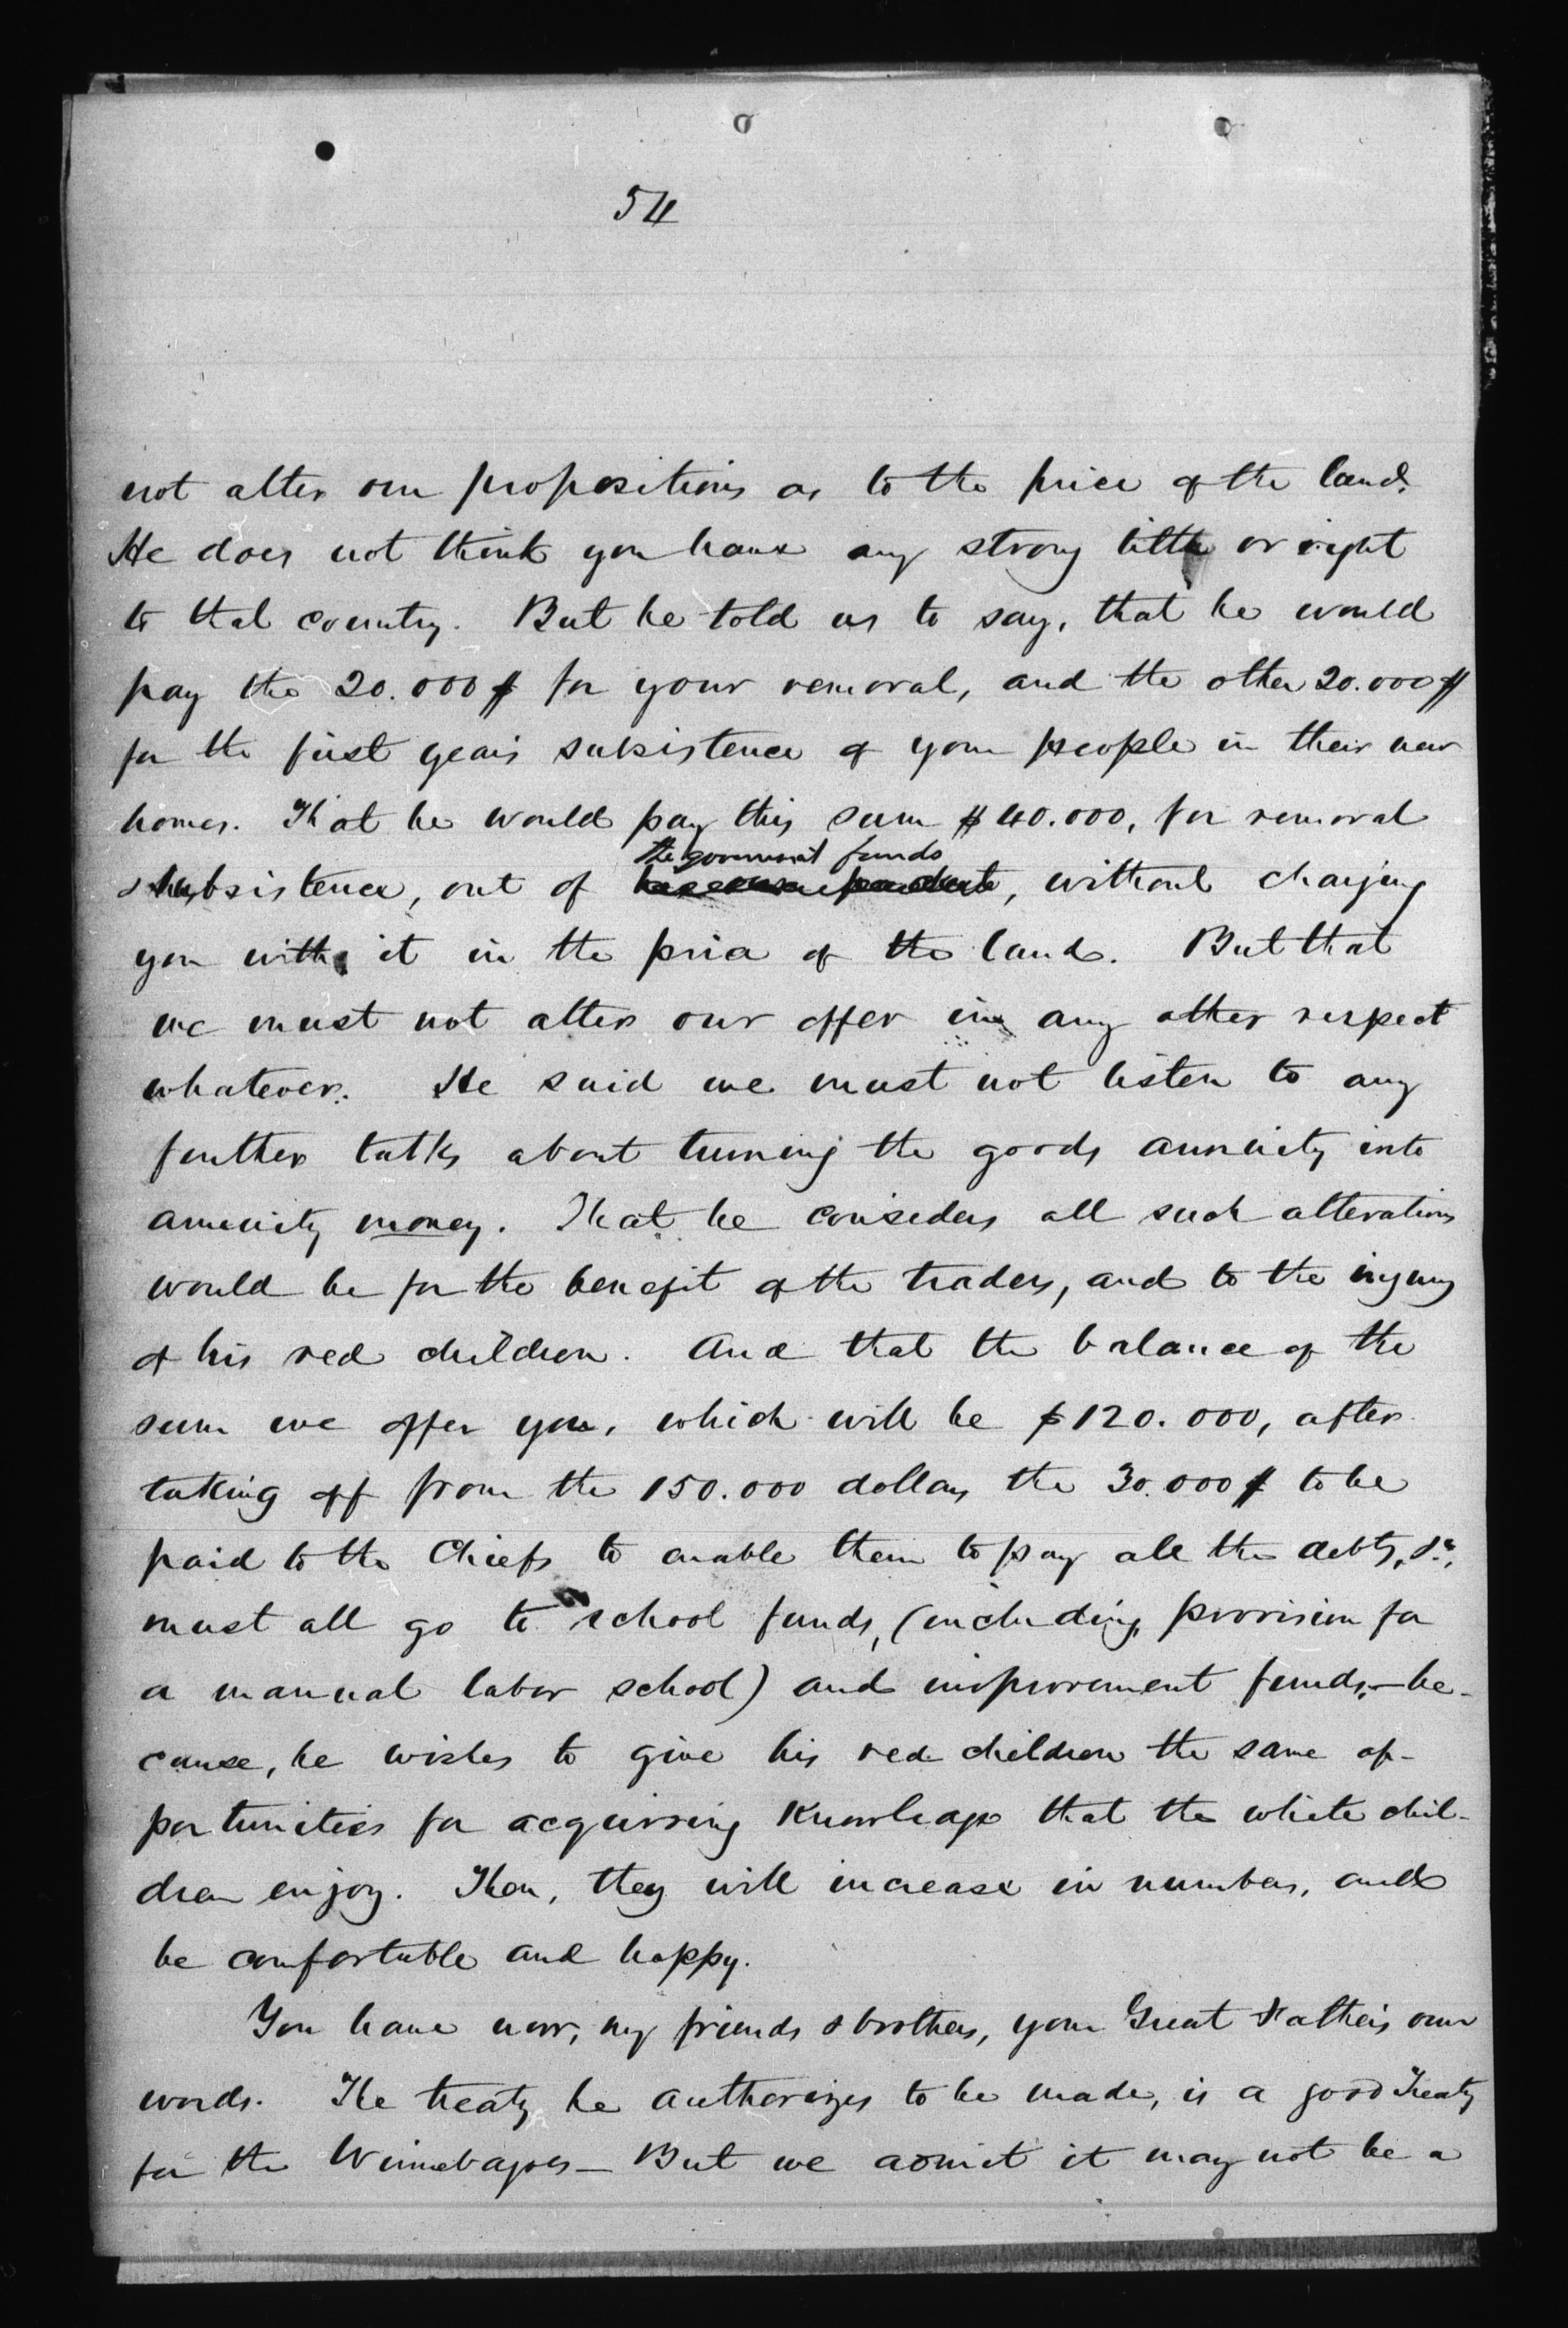 54
not alter our propositions as to the price of the land.
He does not think you have any strong title or right
to that country. But he told us to say, that he would
pay the 20.000$ for your removal, and the other 20.000$
for the first year's subsistence of your people in their new
homes. That he would pay this sum $40.000, for removal
the government funds
& subsistence, out of , without charging
you with it in the price of the land. But that
we must not alter our offer in any other respect
whatever. He said we must not listen to any
further talks about turning the goods annuity into
annuity money. That he considers all such alterations
would be for the benefit of the traders, and to the injury
of his red children. And that the balance of the
sum we offer you, which will be $120.000, after
taking off from the 150.000 dollars the 30.000$ to be
paid to the Chiefs to enable them to pay all the debts, &c.,
must all go to school funds, (including provision for
a manual labor school) and improvement funds,—be-
cause, he wishes to give his red children the same op-
portunities for acquiring knowledge that the white chil-
dren enjoy. Then, they will increase in numbers, and
be comfortable and happy.
You have now, my friends & brothers, your Great Father's own
words. The treaty he authorizes to be made, is a good Treaty
for the Winnebagoes— But we admit it may not be a